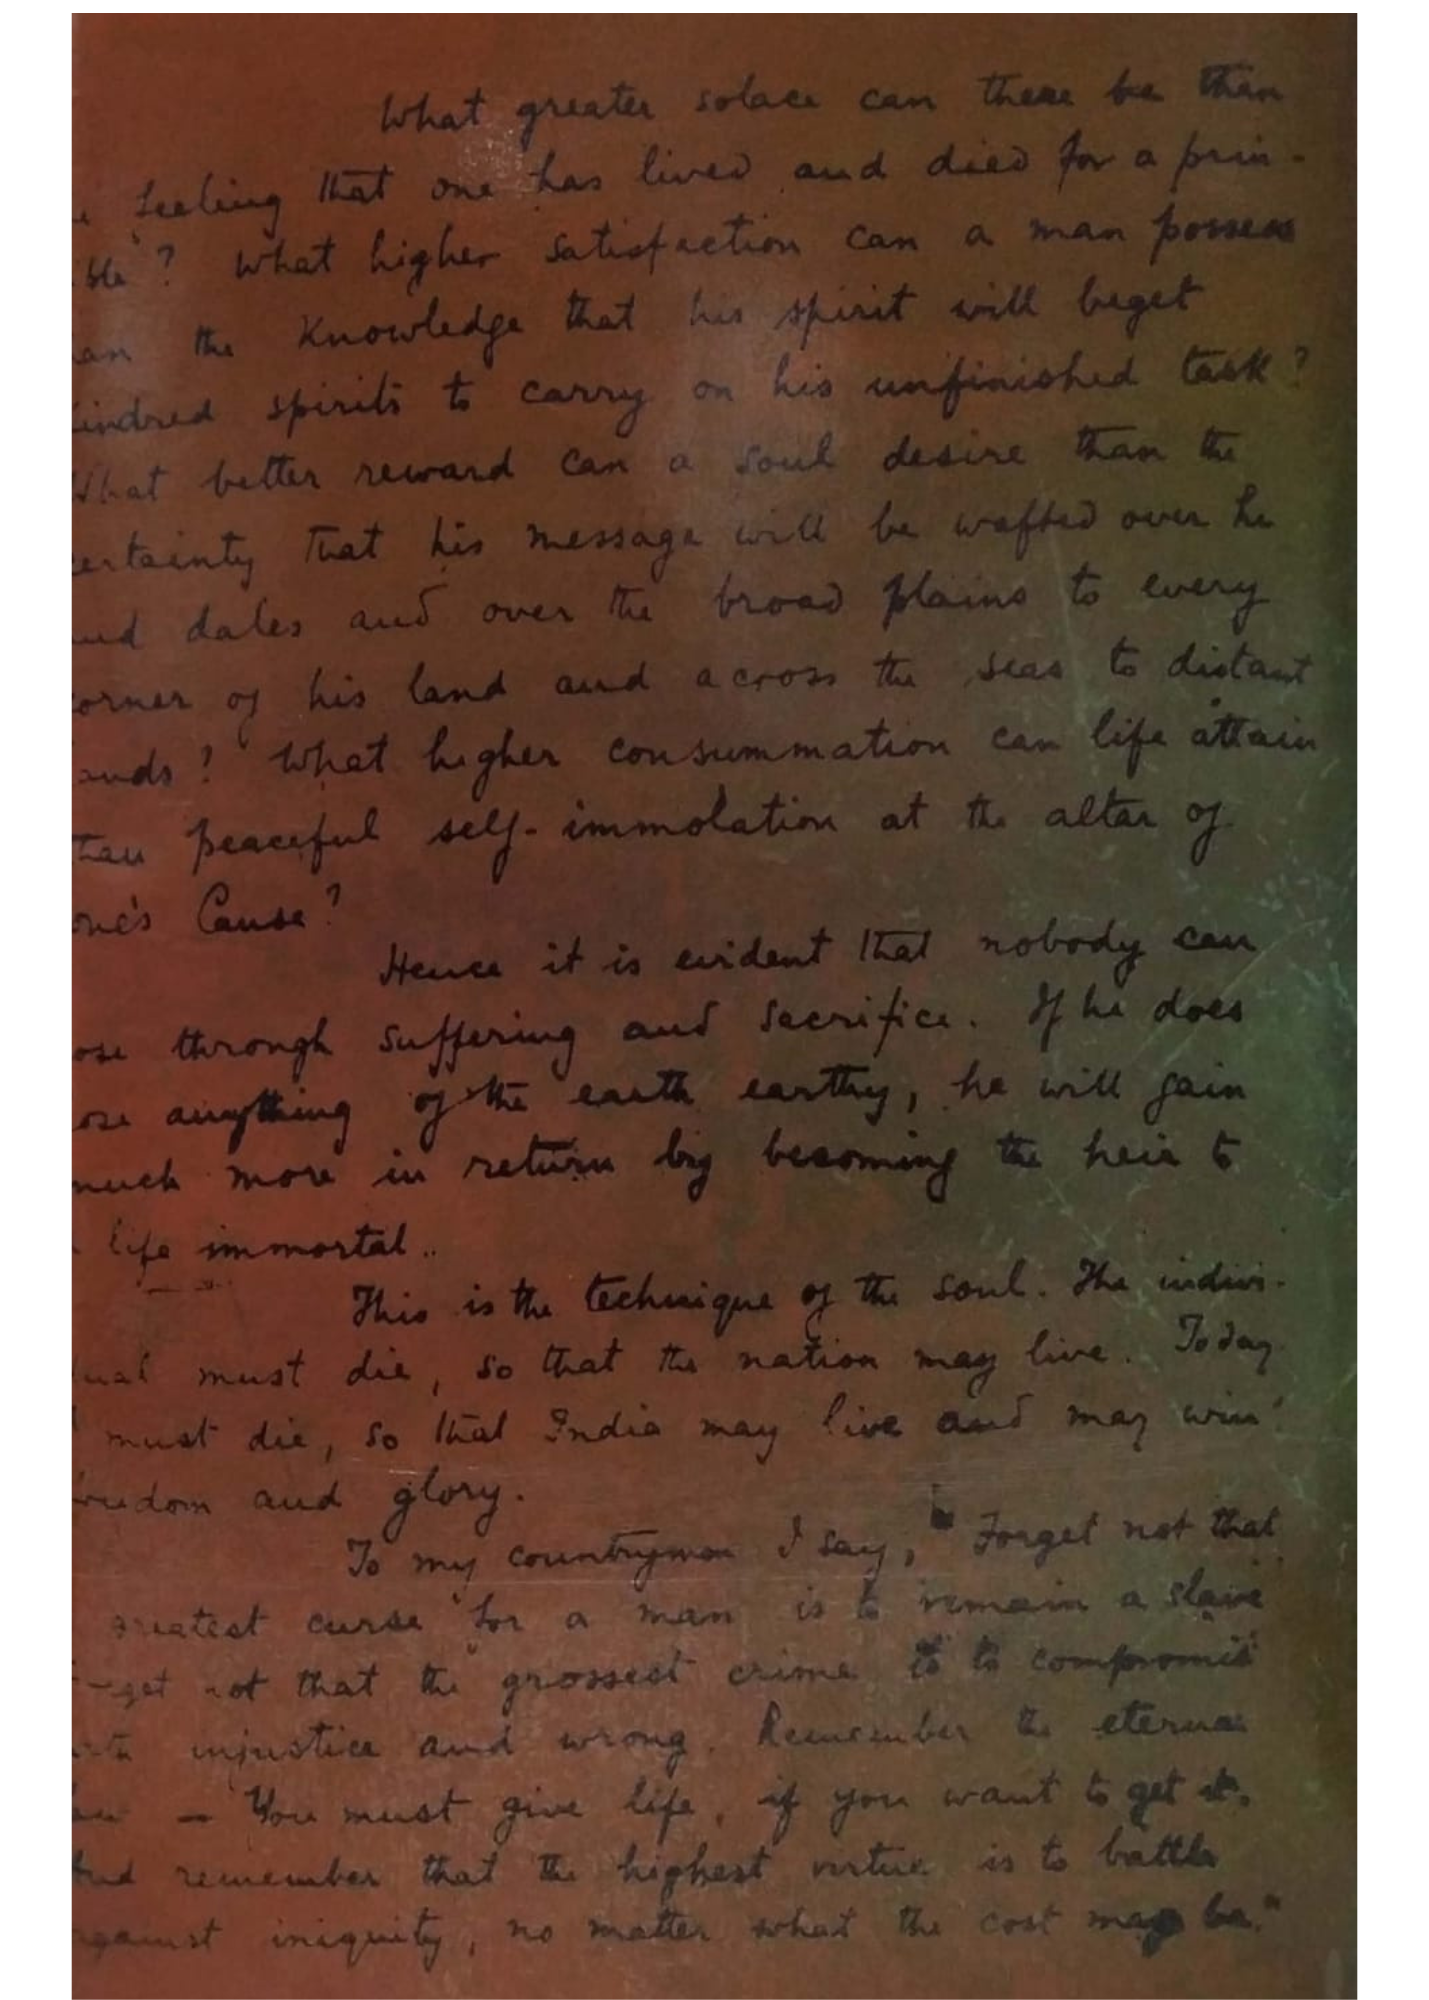 What greater solace can there be than
feeling that one has lived and died for a prin-
ble"? What higher satisfaction can a man possess
an the knowledge that his spirit will beget
indred spirits to carry on his unfinished task?
What better reward can a soul desire than the
certainty that his message will be wafted over hi
and dales and over the broad plains to every
corner of his land and across the seas to distant
ands? What higher consummation can life attain
than peaceful self-immolation at the altar of
one's Cause?
Hence it is evident that nobody can
ose through suffering and sacrifice. If he does
ose anything of the earth earthy, he will gain
much more in return by becoming the heir to
life immortal..
This is the technique of the soul. The indivi-
dual must die, so that the nation may live. Today
I must die, so that India may live and may win
reedom and glory.
To my countrymen I say, "Forget not that
greatest curse for a man is to remain a slave
get not that the grossest crime is to compromise
with injustice and wrong. Remember the eternal
law — You must give life, if you want to get it.
And remember that the highest virtue is to battle
against iniquity, no matter what the cost may be."